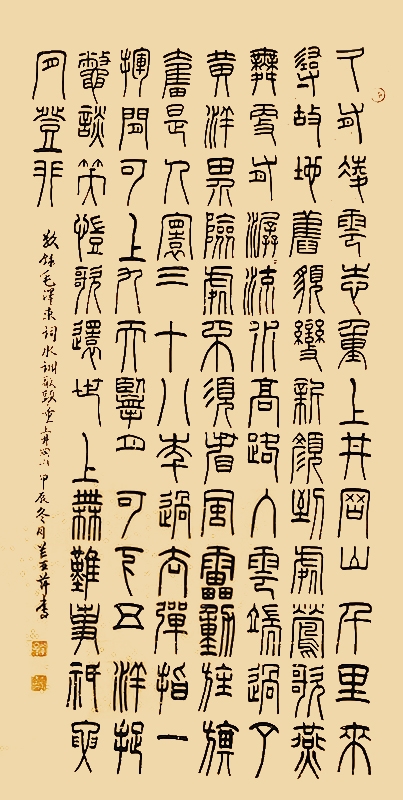 久有凌雲志重上井岡山千里來
尋故地舊貌變新顏到處鶯歌燕
舞更有潺流水高路入雲端過了
黃洋界險處不須看風雷動旌旗
奮是人寰三十八年過去彈指一
揮間可上九天攬月可下五洋捉
鱉談笑凱歌還世上無難事祇要
肯登攀
敬錄毛澤東詞水調歌頭重上井岡山甲辰冬月書